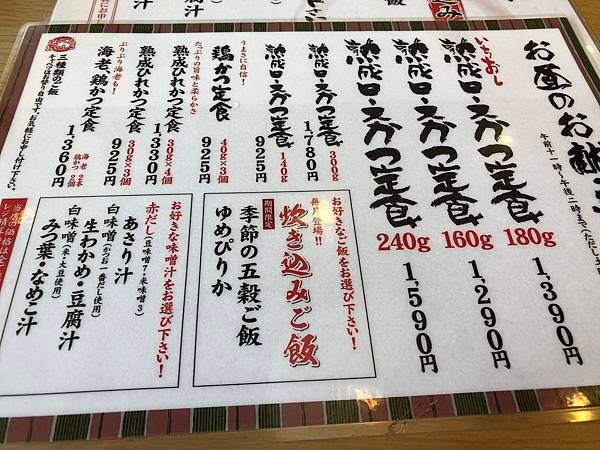 お昼のお献立
午前十一時〜午後二時まで（ただし土
いち押し
熟成ロースかつ定食 180g 1,390円
熟成ロースかつ定食 160g 1,290円
熟成ロースかつ定食 240g 1,590円
熟成ロースかつ定食 300g 1,780円
熟成ロースかつ定食 140g
うまさに自信！
鶏かつ定食 40g×3個 925円
たっぷりの旨味と柔らかさ
熟成ひれかつ定食 30g×4個 1,330円
熟成ひれかつ定食 30g×3個 925円
ぷりぷり海老も！
海老、鶏かつ定食 海老2本 鶏かつ2個 1,360円
三種類のご飯
キャベツはお替り自由です。お気軽にお申し付け下さい。
お好きなご飯をお選び下さい！
毎月登場!!
炊き込みご飯
期間限定
季節の五穀ご飯
ゆめぴりか
お好きな味噌汁をお選び下さい！
赤だし（豆味噌7・米味噌3）
あさり汁
白味噌（かつお一番だし使用）
生わかめ・豆腐汁
白味噌（米・大豆使用）
みつ葉・なめこ汁
当店の価格は全て
レジ精算